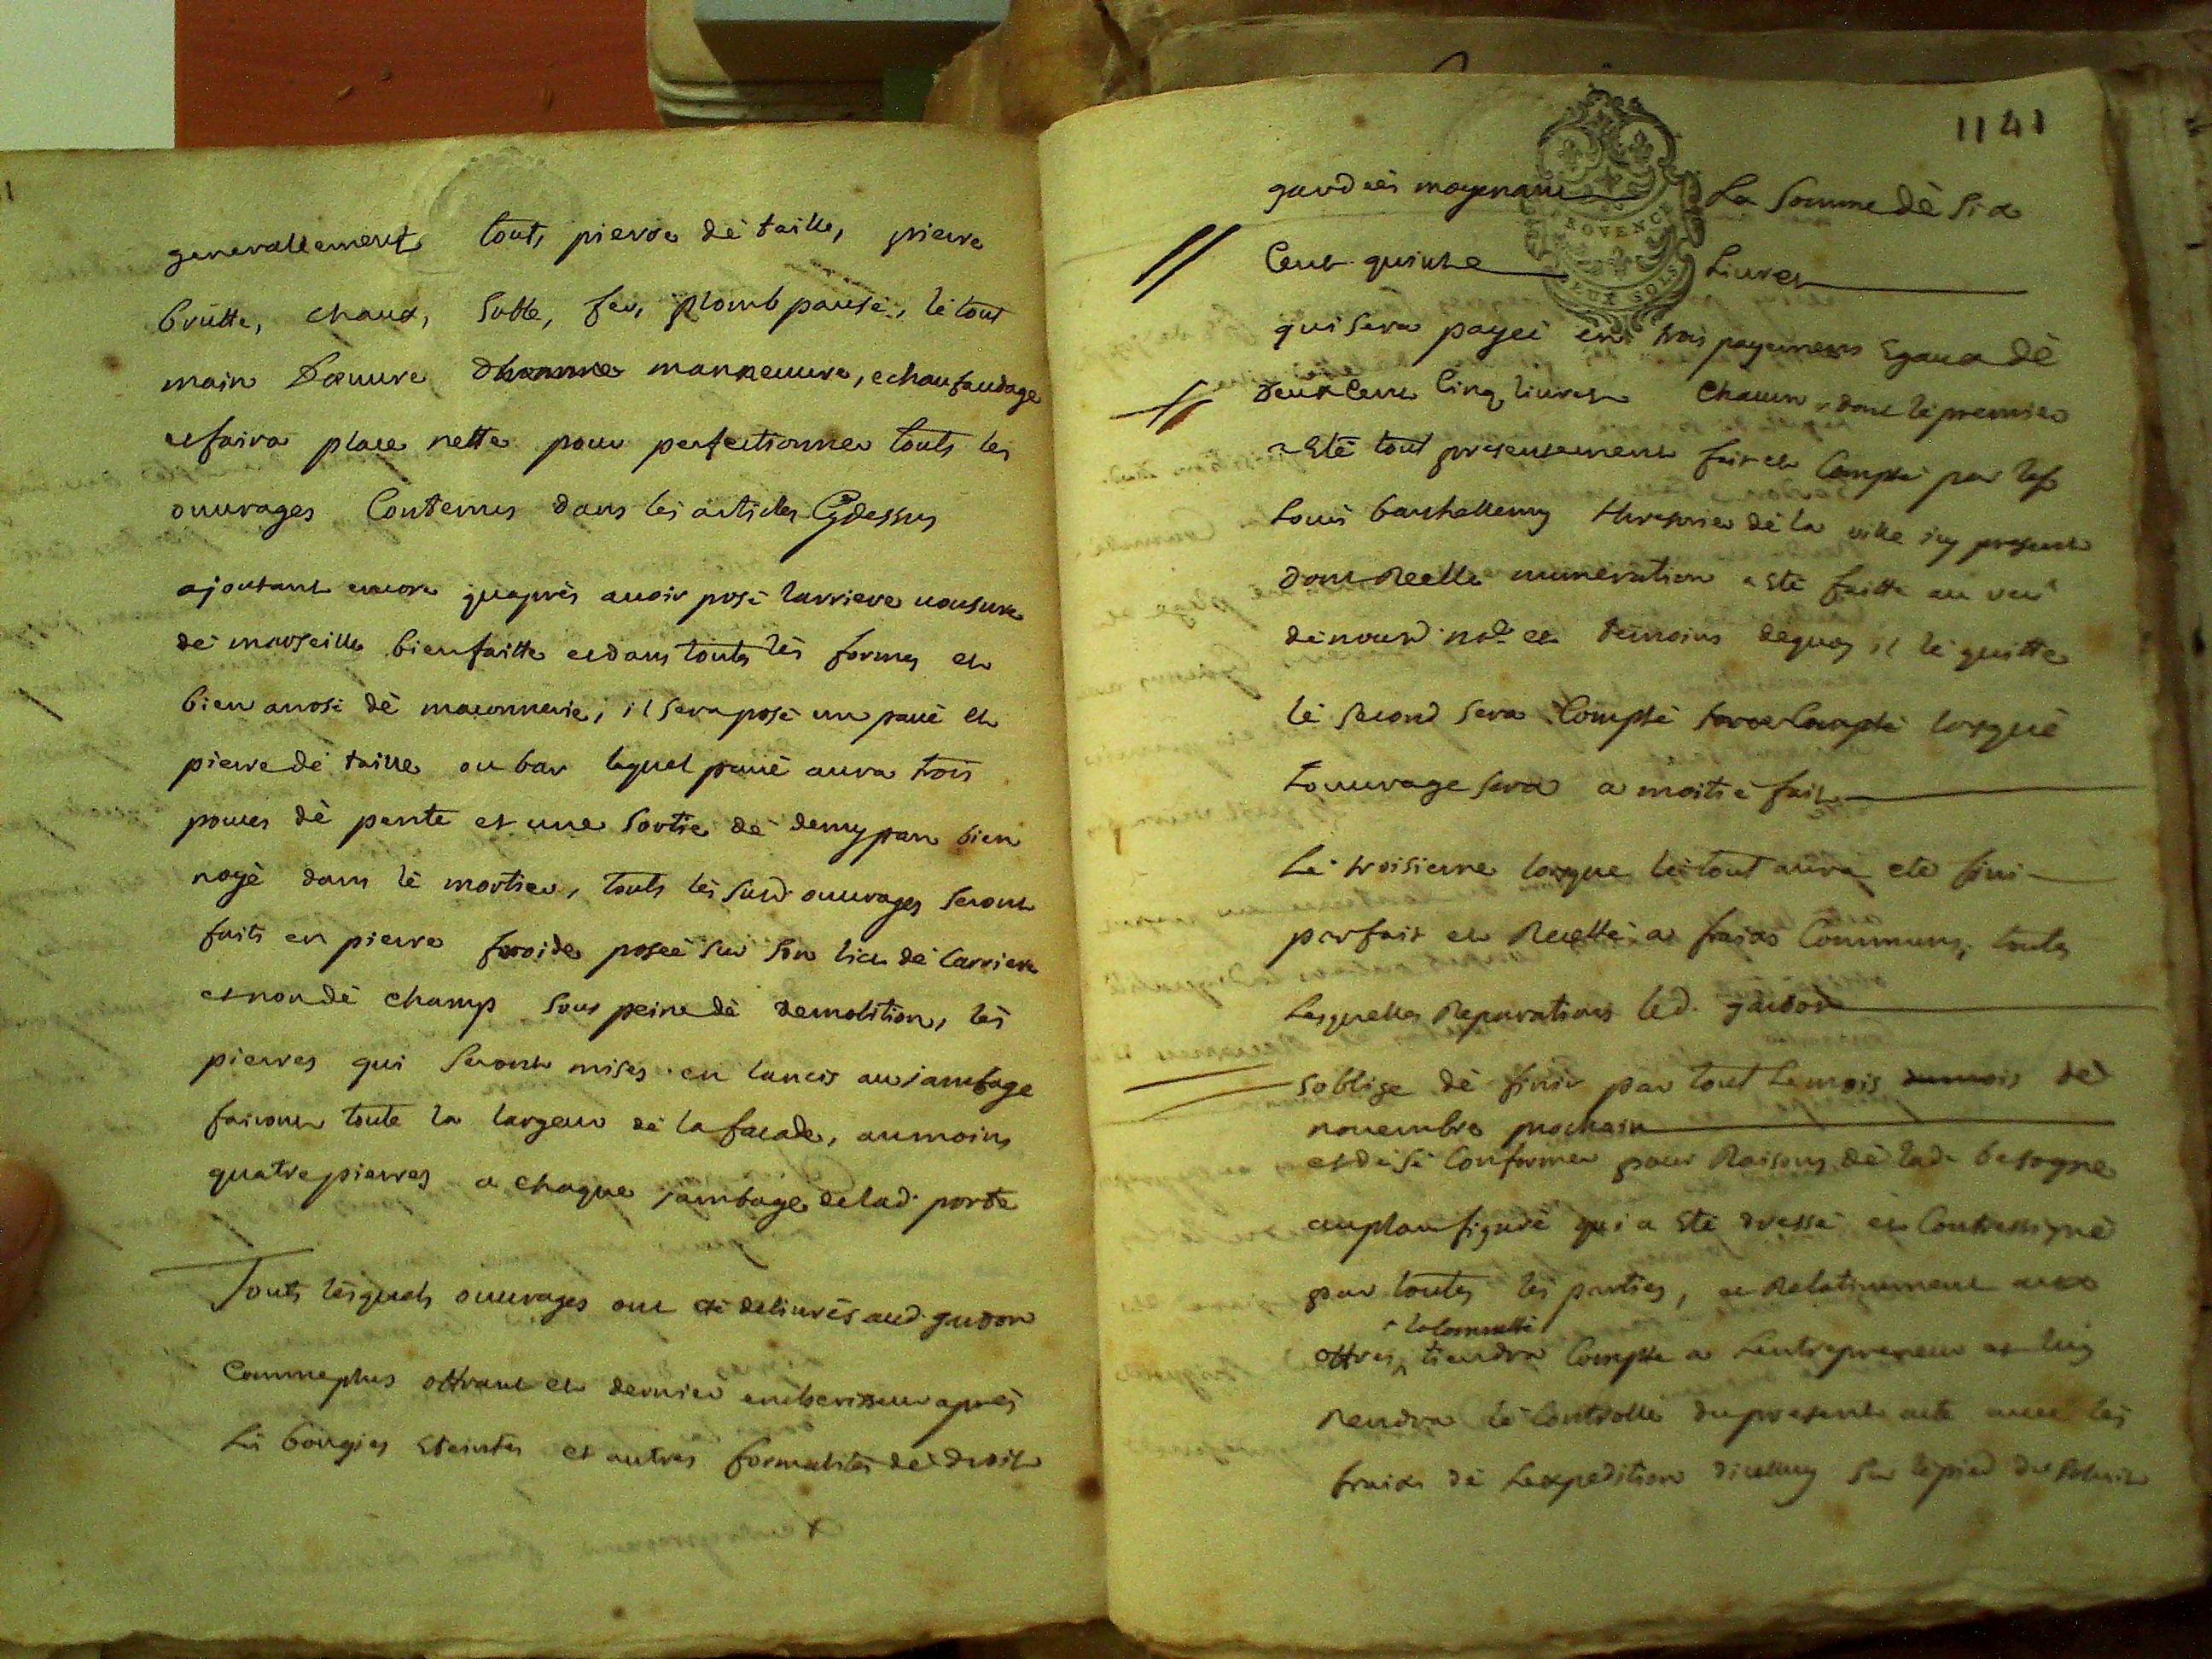 generallement tout, pierre dè taille, pierre
brutte, chaux, sable, fer, plomb pausé, lè tout
main D'œuvre manneuvre, echaufaudage
et faira place nette pour perfectionner touts les
ouvrages Contenus dans lès articles Cydessus
ajoutant encore qu'aprés avoir posé larriere vousure
dè marseille bien faitte et dans touts lès formes et
bien arrosé dè maconnerie, il sera posé un pavè et
pierre dè taille ou bar lequel pavè aura trois
pouces dè pente et une Sortie dè demy pan bien
noyè dans lè mortier, touts lès susd ouvrages Seront
faits en pierre froide poseé sur son lict dè Carriere
et non dè champs sous peine dè demolition, lès
pierres qui Seront mises en lancis au jambage
fairont toute la largeur dè la facade, au moins
quatre pierres a chaque jambage de lad. porte
Touts lèsquels ouvrages ont eté delivrès aud. gardon
Comme plus offrant et dernier encherisseur aprés
Lès bougies Eteintes et autres formalités dè droit
1141
moyenant La Somme dè Six
Cent quinze Livres
PROVENCE
DEUX SOLS
qui sera payeé en trois payemens Egaux dè
Deux Cent Cinq livres Chacun, dont lè premier
a Eté tout presentement fait et Compté par le sr
Louis barthellemy thresorier dè la ville icy present
dont Reelle numeration a Eté faitte au veu
dè nousd. nore et temoins dequoy il lè quitte
lè second sera Compté lorsquè
Louvrage sera a moitié fait
Lè troisieme lorsque lè tout aura eté fini
parfait et Recetté a fraixs Communs, touts
Lesquelles Reparations led. gardon
s'oblige dè finir par tout Le mois dè
novembre prochain
et dè sè Conformer pour Raisons dè lad. besogne
au plan figuré qui a Eté dressé et Contresigné
par toutes lès parties, et Relativement aux
offres la Communeté tiendra Compte a Lentrepreneur et luy
Rendra lè Controlle du present acte avec lès
fraixs dè Lexpedition dicelluy sur lè pied du